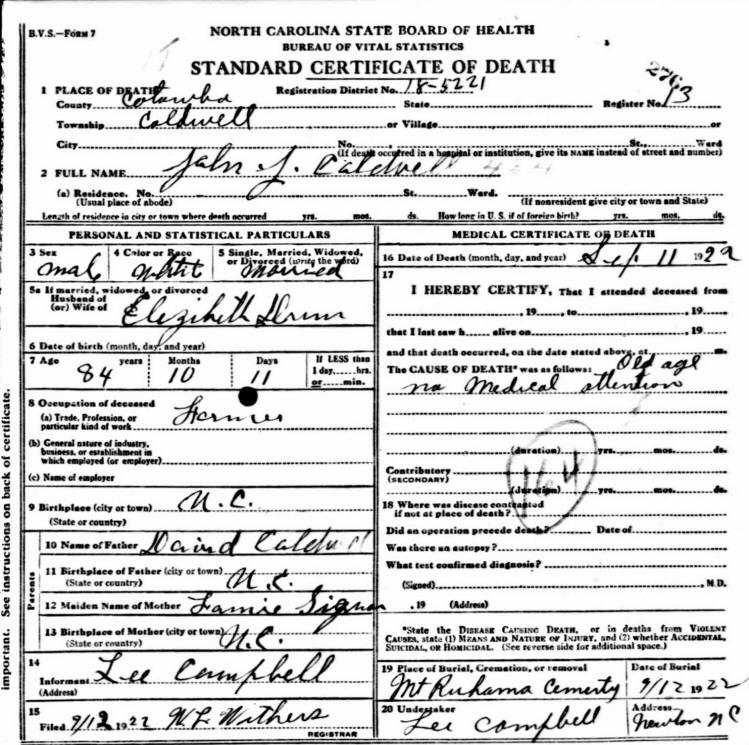 B.V.S.—FORM 7
NORTH CAROLINA STATE BOARD OF HEALTH
BUREAU OF VITAL STATISTICS
STANDARD CERTIFICATE OF DEATH
1 PLACE OF DEATH Registration District No. 18-5221 2763
County Catawba State Register No. 13
Township Caldwell or Village or
City No. St., Ward
(If death occurred in a hospital or institution, give its NAME instead of street and number)
2 FULL NAME John J. Caldwell
(a) Residence. No. St. Ward.
(Usual place of abode) (If nonresident give city or town and State)
Length of residence in city or town where death occurred yrs. mos. ds. How long in U. S. if of foreign birth? yrs. mos. ds.
PERSONAL AND STATISTICAL PARTICULARS
3 Sex 4 Color or Race 5 Single, Married, Widowed,
or Divorced (write the word)
male white married
5a If married, widowed, or divorced
Husband of
(or) Wife of Elezibeth Drum
6 Date of birth (month, day, and year)
7 Age years Months Days If LESS than
1 day, hrs.
or min.
84 10 11
8 Occupation of deceased
(a) Trade, Profession, or
particular kind of work Farmer
(b) General nature of industry,
business, or establishment in
which employed (or employer)
(c) Name of employer
9 Birthplace (city or town) N.C.
(State or country)
Parents
10 Name of Father David Caldwell
11 Birthplace of Father (city or town)
(State or country) N.C.
12 Maiden Name of Mother Famie Sigmon
13 Birthplace of Mother (city or town) N.C.
(State or country)
14
Informant Lee Campbell
(Address)
15
Filed 9/12 1922 W L Withers
REGISTRAR
MEDICAL CERTIFICATE OF DEATH
16 Date of Death (month, day, and year) Sep. 11 1922
17
I HEREBY CERTIFY, That I attended deceased from
, 19 , to , 19
that I last saw h alive on , 19
and that death occurred, on the date stated above, at m.
The CAUSE OF DEATH* was as follows: Old age
no Medical attention
(duration) yrs. mos. ds.
Contributory
(SECONDARY)
164
(duration) yrs. mos. ds.
18 Where was disease contracted
if not at place of death?
Did an operation precede death? Date of
Was there an autopsy?
What test confirmed diagnosis?
(Signed) , M.D.
, 19 (Address)
*State the DISEASE CAUSING DEATH, or in deaths from VIOLENT
CAUSES, state (1) MEANS AND NATURE OF INJURY, and (2) whether ACCIDENTAL,
SUICIDAL, OR HOMICIDAL. (See reverse side for additional space.)
19 Place of Burial, Cremation, or removal Date of Burial
Mt Ruhama Cemerty 9/12 1922
20 Undertaker Address
Lee Campbell Newton NC
important. See instructions on back of certificate.